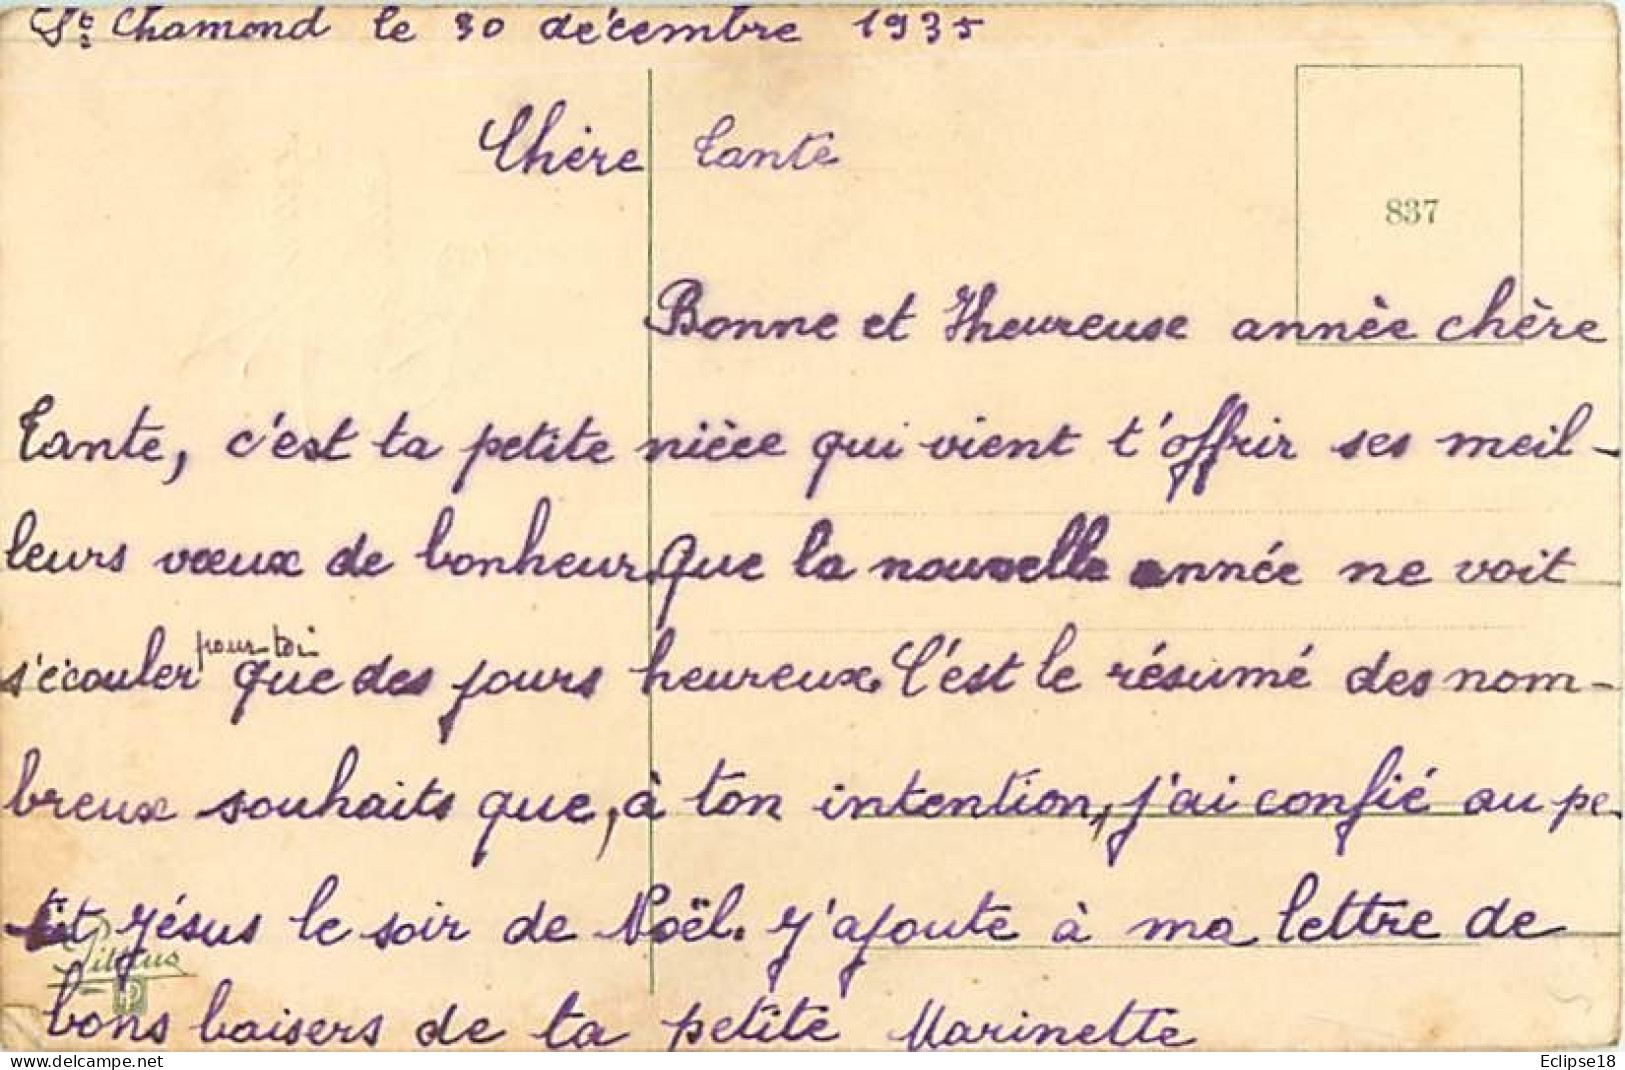 St Chamond le 30 décembre 1935
Chère Tante
837
Bonne et Heureuse année chère
Tante, c'est ta petite nièce qui vient t'offrir ses meil-
leurs vœux de bonheur. Que la nouvelle année ne voit
pour toi
s'écouler que des jours heureux. C'est le résumé des nom-
breux souhaits que, à ton intention, j'ai confié au pe-
tit Jésus le soir de Noël. J'ajoute à ma lettre de
bons baisers de ta petite Marinette
delcampe.net
Eclipse18